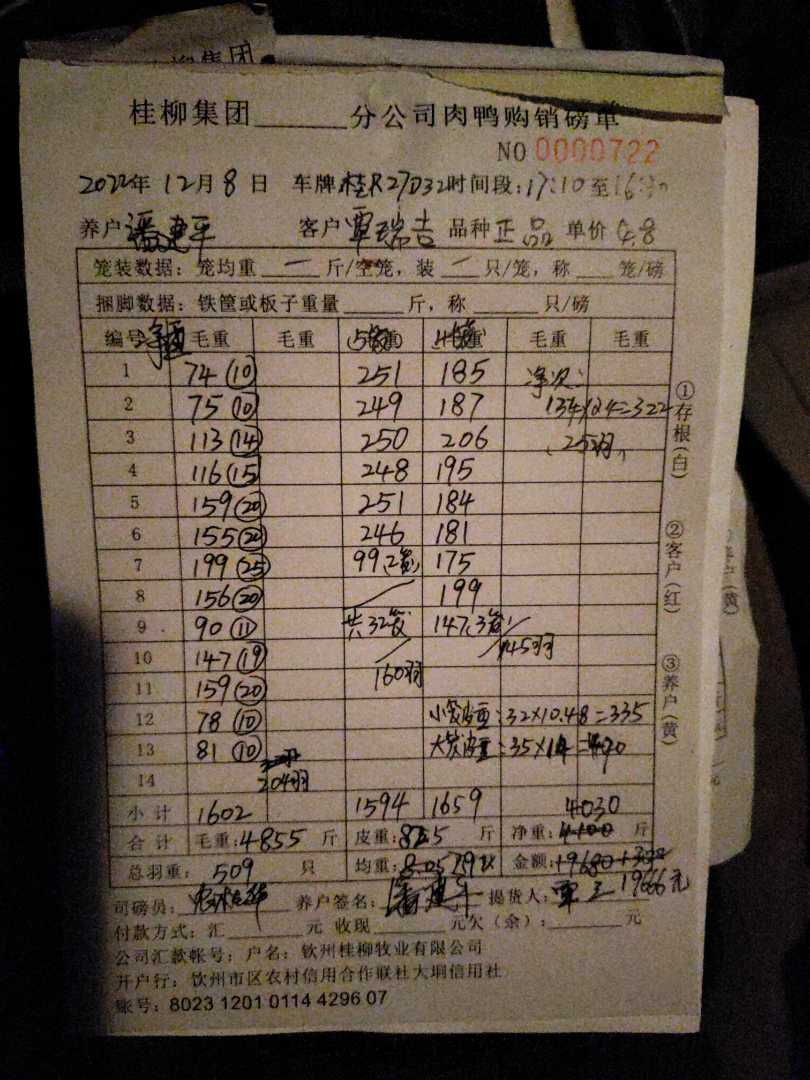 柳集团
桂柳集团______分公司肉鸭购销磅单
NO 0000722
2022年 12月 8日 车牌桂R27D32时间段:17:10至16:30
养户潘建平 客户覃瑞吉 品种正品 单价4.8
笼装数据：笼均重 一 斤/空笼，装 一 只/笼，称____笼/磅
捆脚数据：铁筐或板子重量______斤，称______只/磅
编号 净重 毛重 毛重 毛重 毛重
1 74(10) 251 185 净次:
2 75(10) 249 187 134×2.4=322
3 113(14) 250 206 (25羽)
4 116(15) 248 195
5 159(20) 251 184
6 155(20) 246 181
7 199(25) 99(2袋) 175
8 156(20) 199
9 90(11) 共32袋 147(3袋) 145羽
10 147(19)
11 159(20) 160羽
12 78(10) 小袋皮重:32×10.48=335
13 81(10) 大袋皮重:35×14=490
14 204羽
小计 1602 1594 1659 4030
合计 毛重:4855 斤 皮重:825 斤 净重:4100 斤
总羽重：509 只 均重: 金额:
19666元
司磅员： 养户签名：潘建平 提货人：覃
付款方式：汇______元 收现______元欠（余）:______元
公司汇款帐号：户名：钦州桂柳牧业有限公司
开户行：钦州市区农村信用合作联社大垌信用社
账号：8023 1201 0114 4296 07
①存根(白)
②客户(红)
③养户(黄)